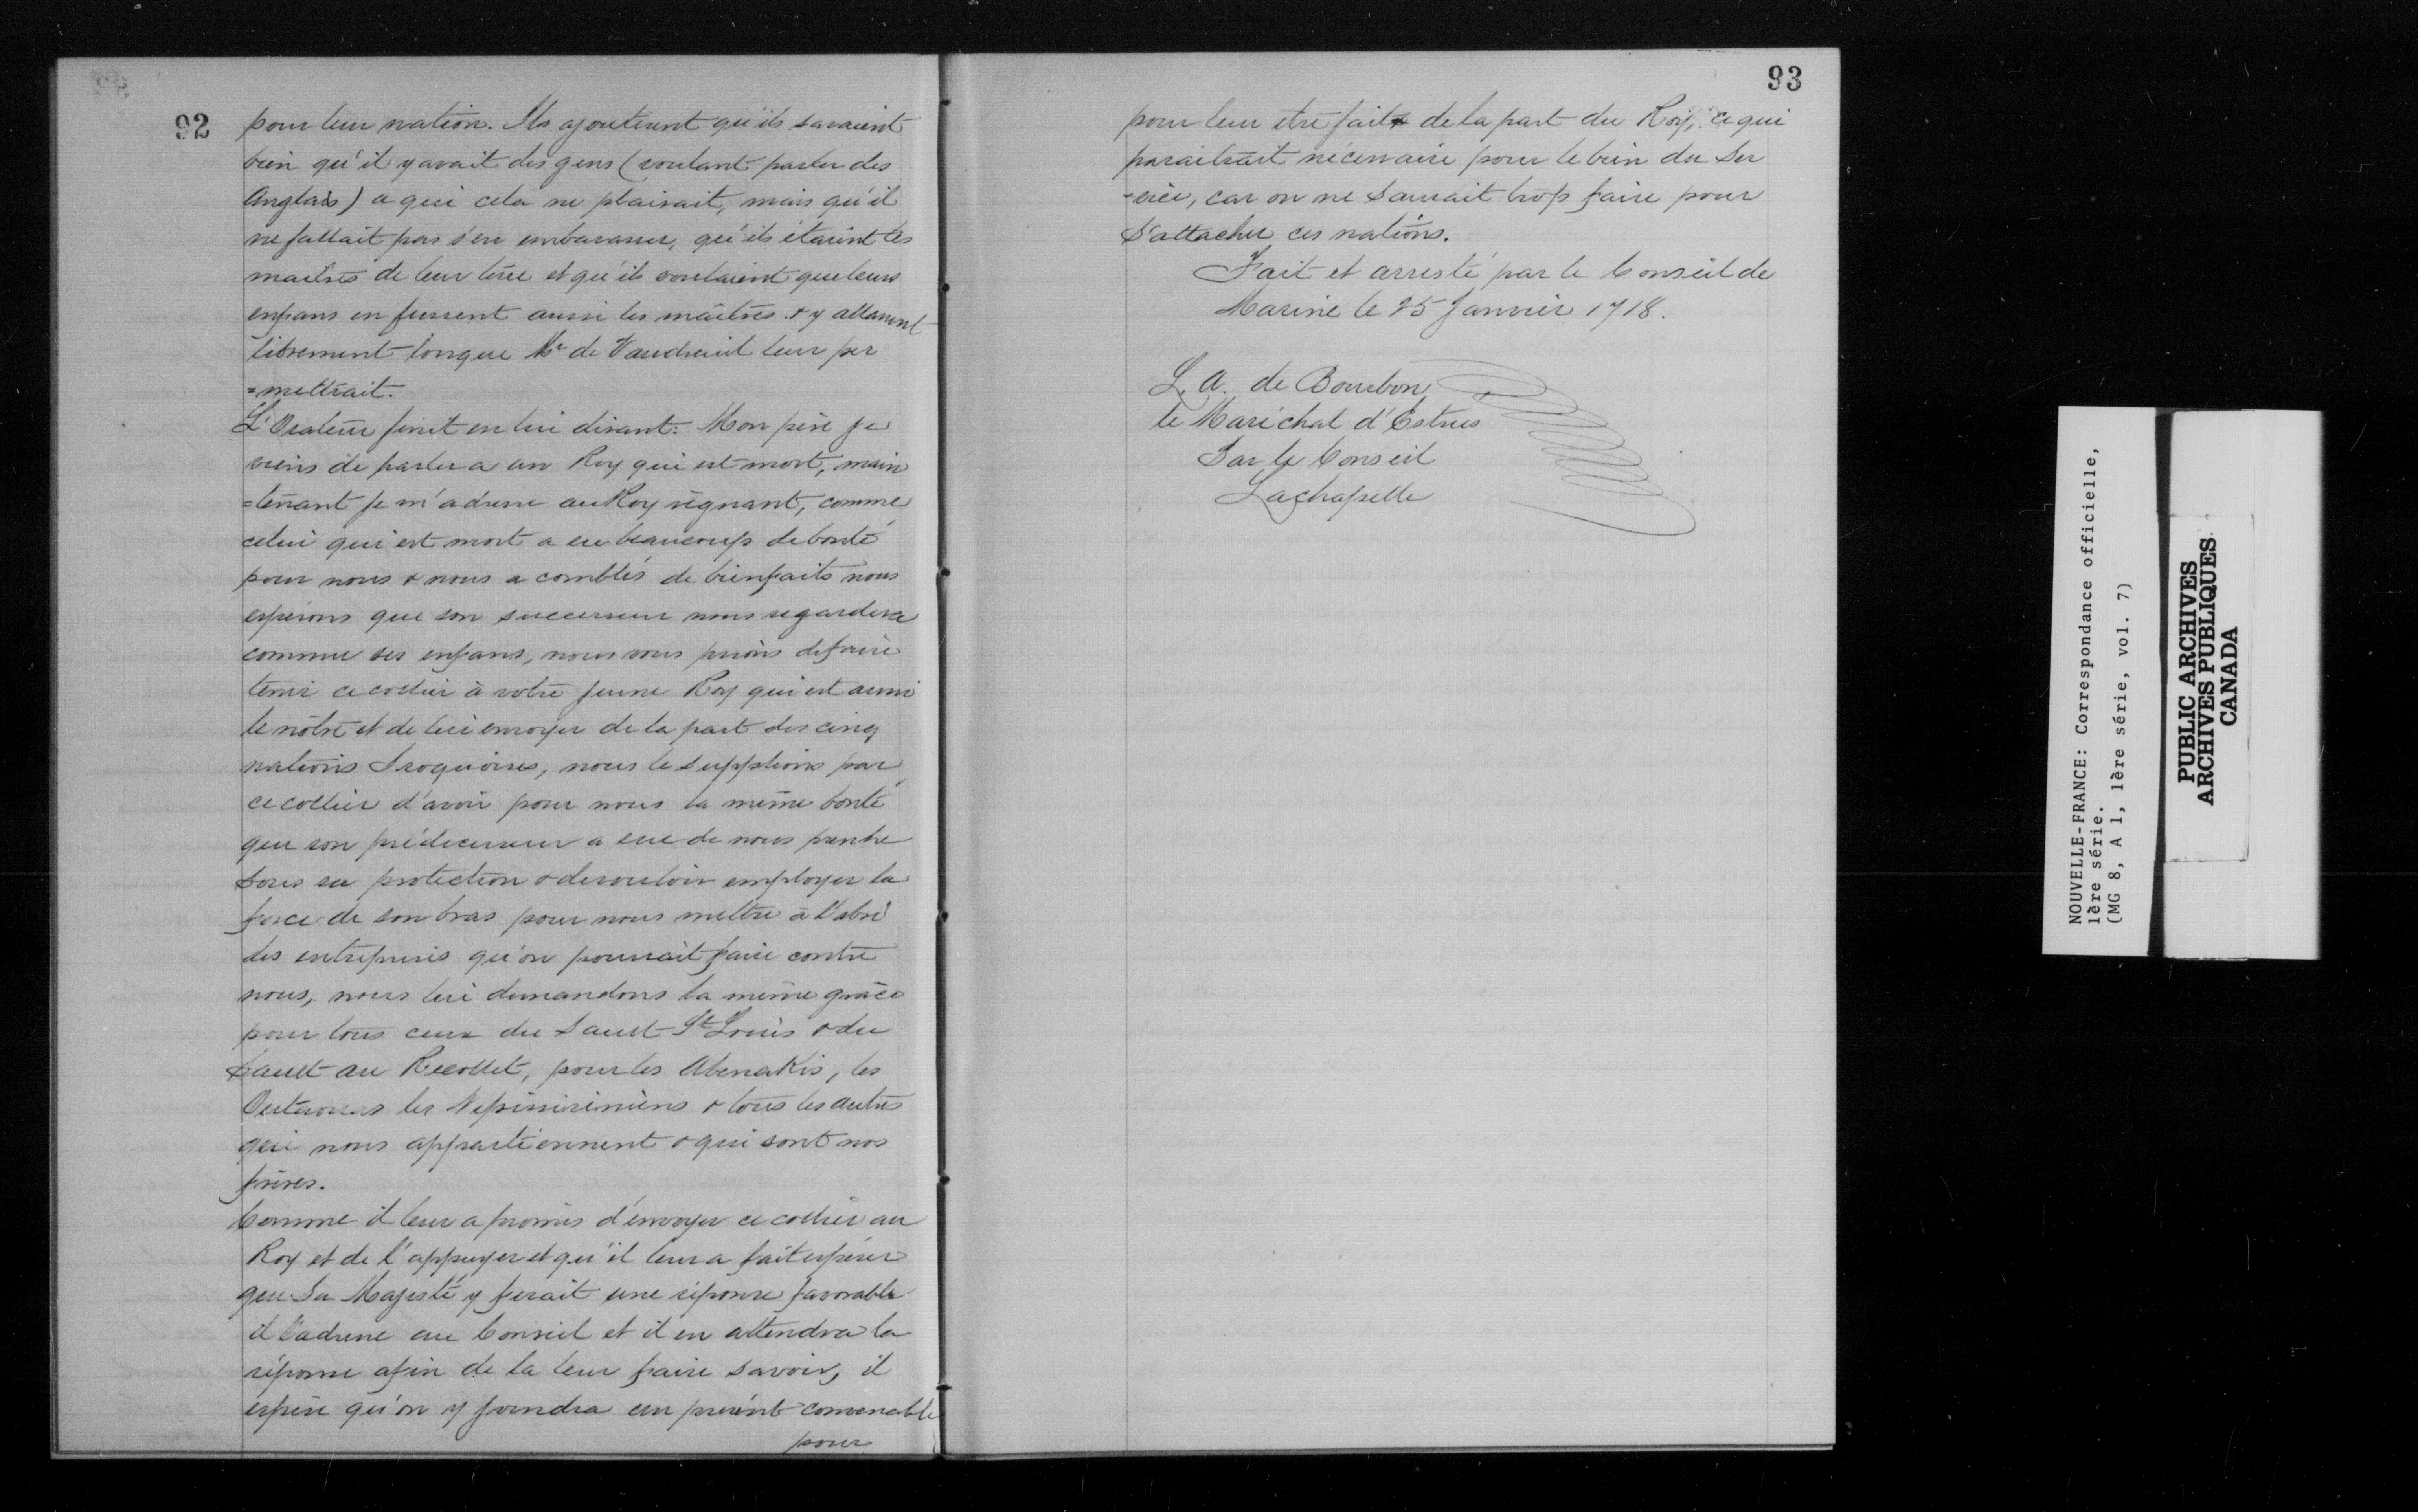 92
pour leur nation. Ils ajouterent qu'ils savaient
bien qu'il y avait des gens (voulant parler des
Anglais) a qui cela ne plaisait, mais qu'il
ne fallait pas s'en embarasser, qu'ils étaient les
maitres de leur terre et qu'ils voulaient que leurs
enfans en fussent aussi les maitres & y allassent
librement lorsque Mr de Vaudreuil leur per
=mettrait.
L'Orateur finit en lui disant: Mon père je
viens de parler a un Roy qui est mort, main
=tenant je m'adresse au Roy régnant, comme
celui qui est mort a eu beaucoup de bonté
pour nous & nous a comblés de bienfaits nous
espérons que son successeur nous regardera
comme ses enfans, nous vous prions de faire
tenir ce collier à votre jeune Roy qui est aussi
le nôtre et de lui envoyer de la part des cinq
nations Iroquoises, nous le supplions par
ce collier d'avoir pour nous la même bonté
que son prédecesseur a eue de nous prendre
sous sa protection & de vouloir employer la
force de son bras pour nous mettre à l'abri
des entreprises qu'on pourrait faire contre
nous, nous lui demandons la même grâce
pour tous ceux du Sault St Louis & du
Sault au Recollet, pour les Abenakis, les
Outaouas les Nepissiriniens & tous les autres
qui nous appartiennent & qui sont nos
frères.
Comme il leur a promis d'envoyer ce collier au
Roy et de l'appuyer et qu'il leur a fait espérer
que Sa Majesté y ferait une réponse favorable
il l'adresse au Conseil et il en attendra la
réponse afin de la leur faire savoir, il
espère qu'on y joindra un présent convenable
pour
93
pour leur etre fait de la part du Roy, ce qui
paraitrait nécessaire pour le bien du Ser
=vice, car on ne saurait trop faire pour
s'attacher ces nations.
Fait et arresté par le Conseil de
Marine le 25 Janvier 1718.
L. A. de Bourbon
le Maréchal d'Estrees
Par le Conseil
Lachapelle
NOUVELLE-FRANCE: Correspondance officielle,
1ère série.
(MG 8, A 1, 1ère série, vol. 7)
PUBLIC ARCHIVES
ARCHIVES PUBLIQUES
CANADA